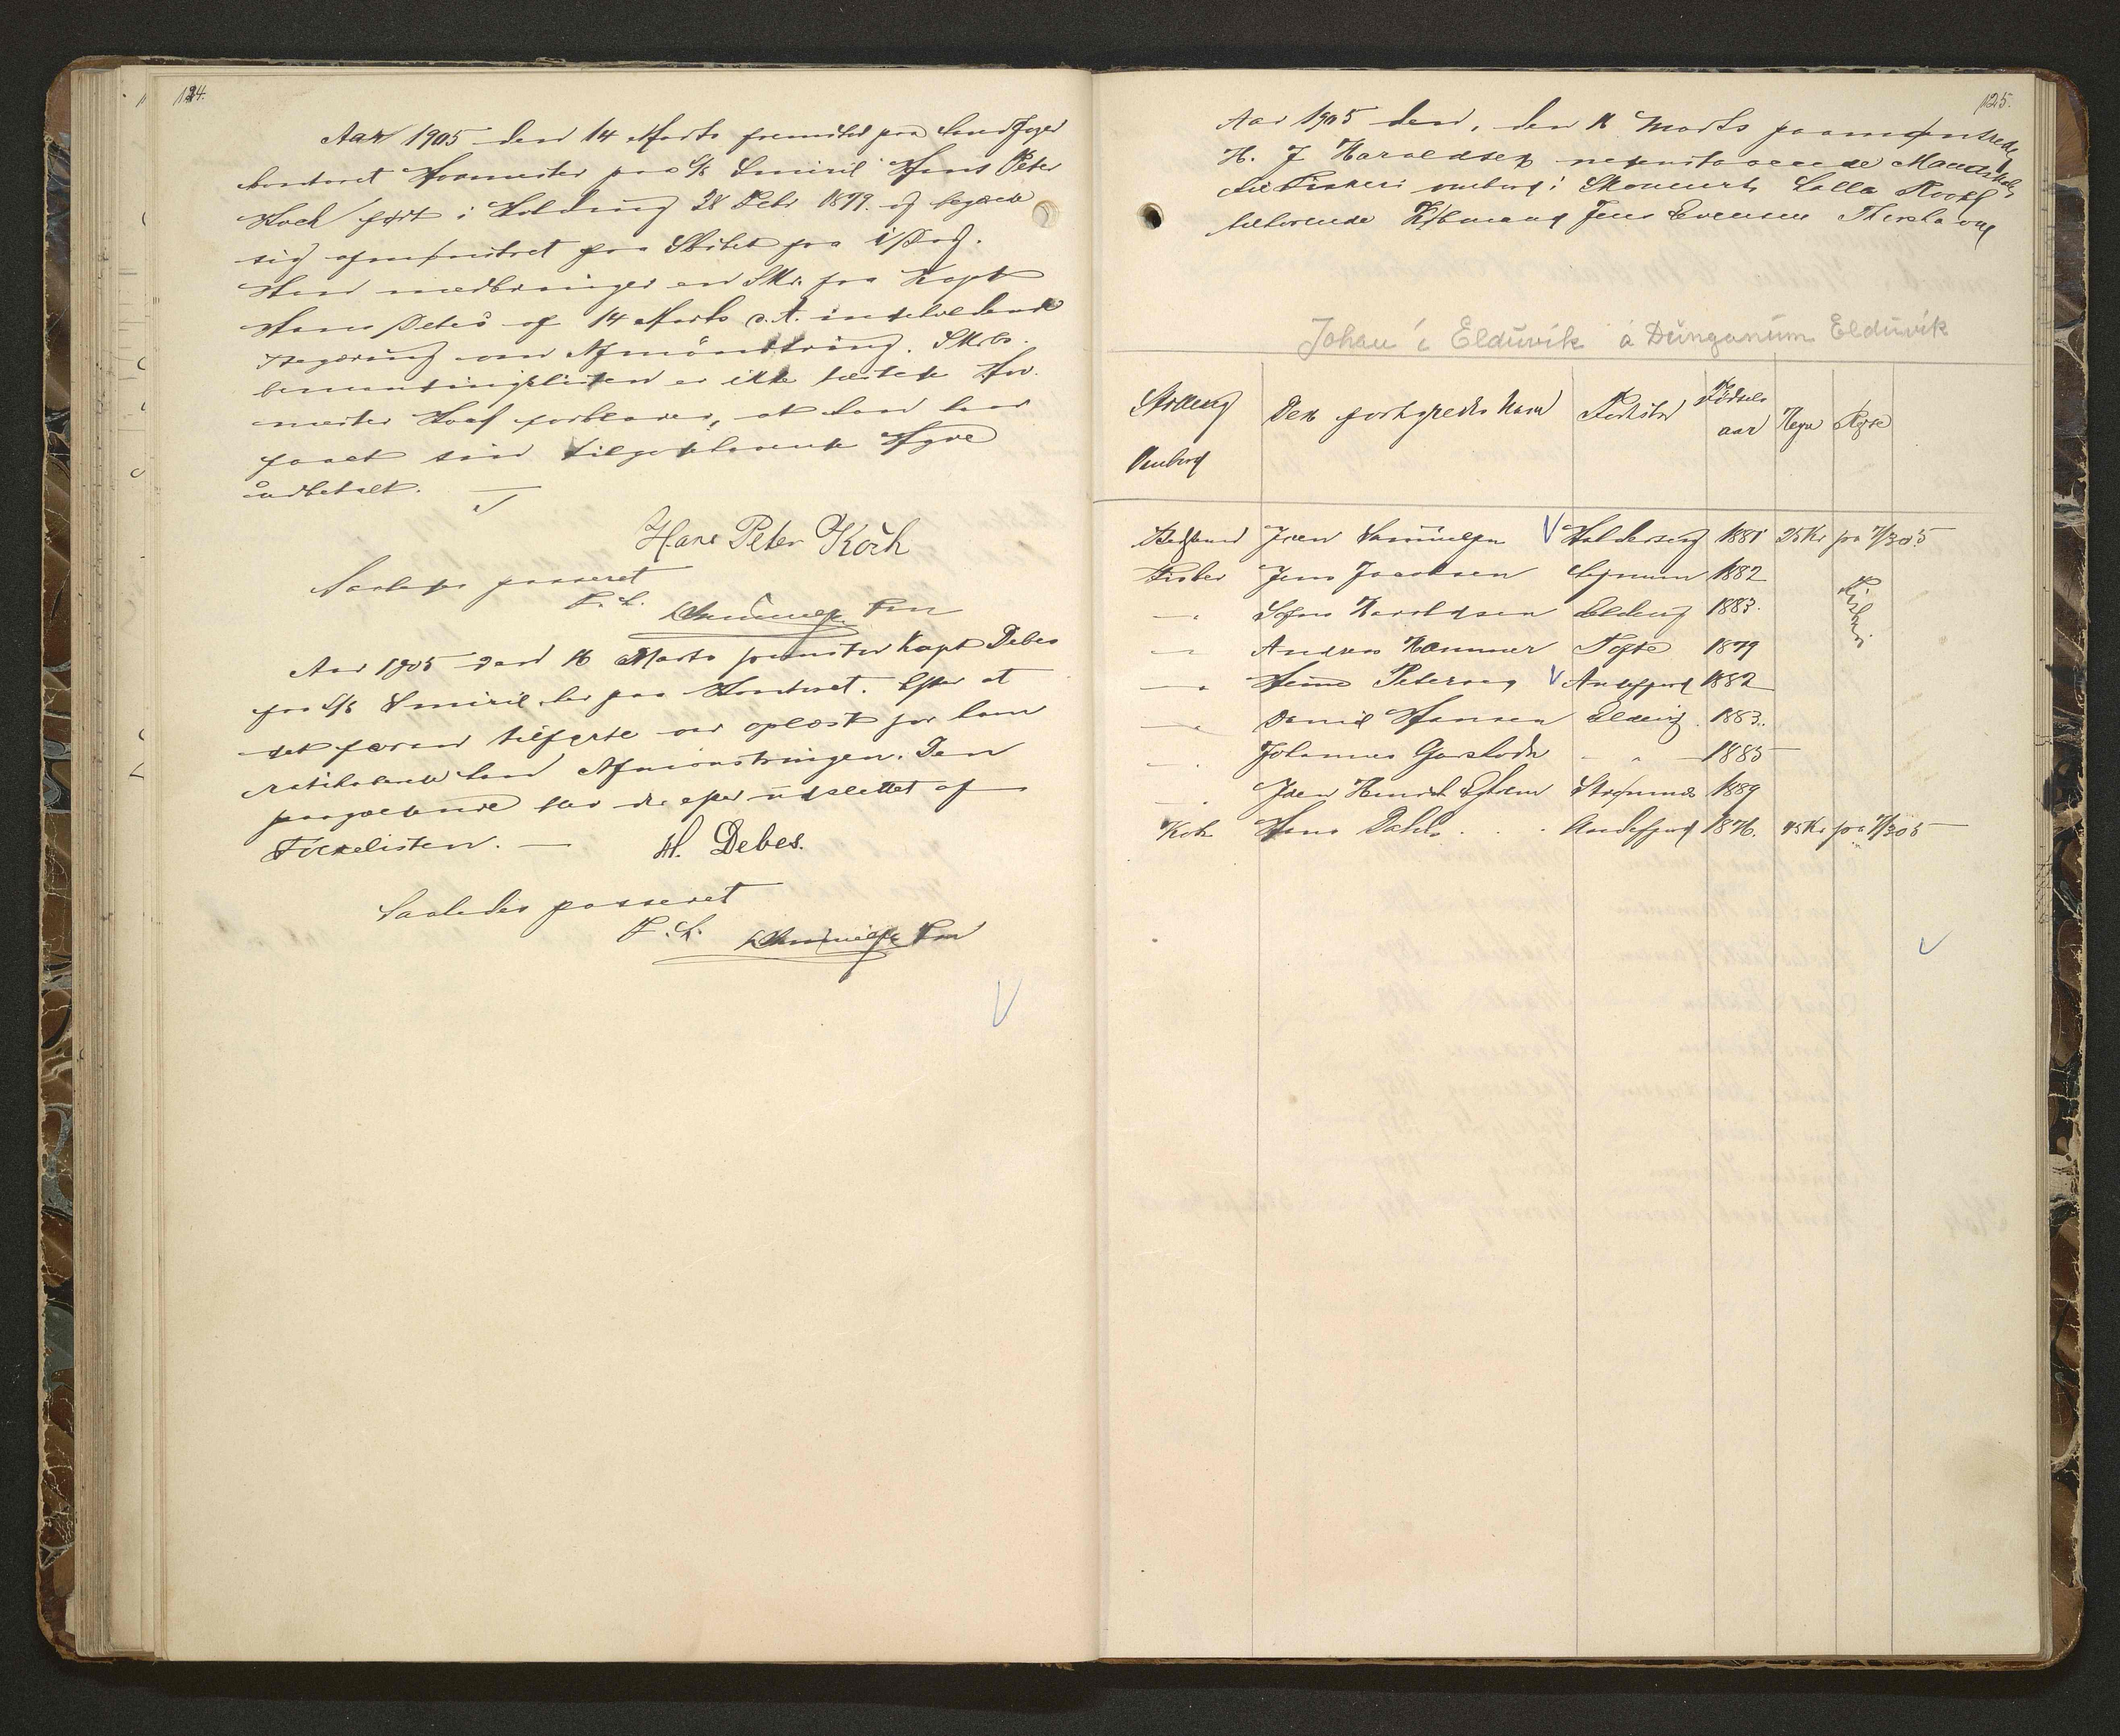 124.
Aar 1905 den 14 Marts fremstod paa Landfoged
kontoret Hovmester paa S/S Smiril Hans Peter
Koch født i Kolding 28 Febr 1879. og begærede
sig afmønstret fra Skibet fra i Dag.
Han medbringer en Skr. fra Kapt
Hans Debes af 14 Marts d. A. indeholdende
Begæring om Afmönstring. Skibs
bemandingslisten er ikke Hov
mester Koch forklarer, at han har
faaet sin tilgodehavende Hyre
udbetalt.
Hans Peter Koch
Saaledes passeret
Aar 1905 den 16 Marts fremstod Kapt Debes
fra S/S Smiril her paa Kontoret. Efter at
det foran tilførte var oplæst for ham
ratihaberede han Afmönstringen. Den
paagældende blev derefter udslettet af
Folkelisten. —
H. Debes.
Saaledes passeret
125.
Aar 1905 den, den 16 Marts paamønstrede
H. J Haraldsen nedenstaaende Mandskab
til Fiskeri ombord i Skonnert Lalla Rookh
tilhørende Købmand Jens Evensen Thorshavn
Johan í Elduvík á Dúnganum Elduvík
Stilling Ombord
Den forhyredes Navn
Fødested
Fødsels aar
Hyre
Rejse
Bedstmand Joen Samuelsen V Haldersvig 1881 25 Kr fra 7/3 05
Fisker Jens Joensen 1882 Fiskeri
— " Haraldsen Eldevig 1883.
— " Andreas Hammer Tofte 1879
— " Petersen V Andefjord 1882
— " Daniel Hansen Eldevig 1883.
— " Johannes — " — 1885
— " Joen Hendrik Strømnæs 1889
Kok Hans Dahl . . . Andefjord 1876. 45 Kr fra 7/3 05
V
V